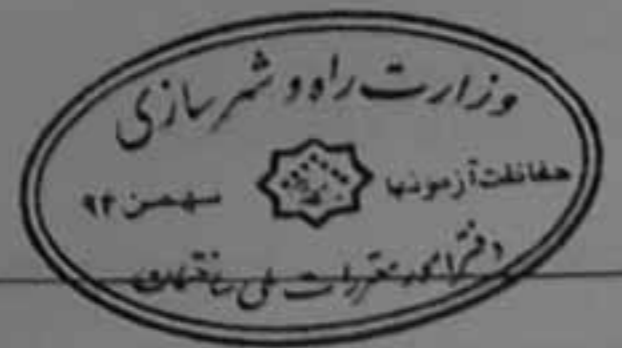 وزارت راه و شهرسازی
حفاظت آزمونها
بهمن ۹۲
دفتر امور مقررات ملی ساختمان